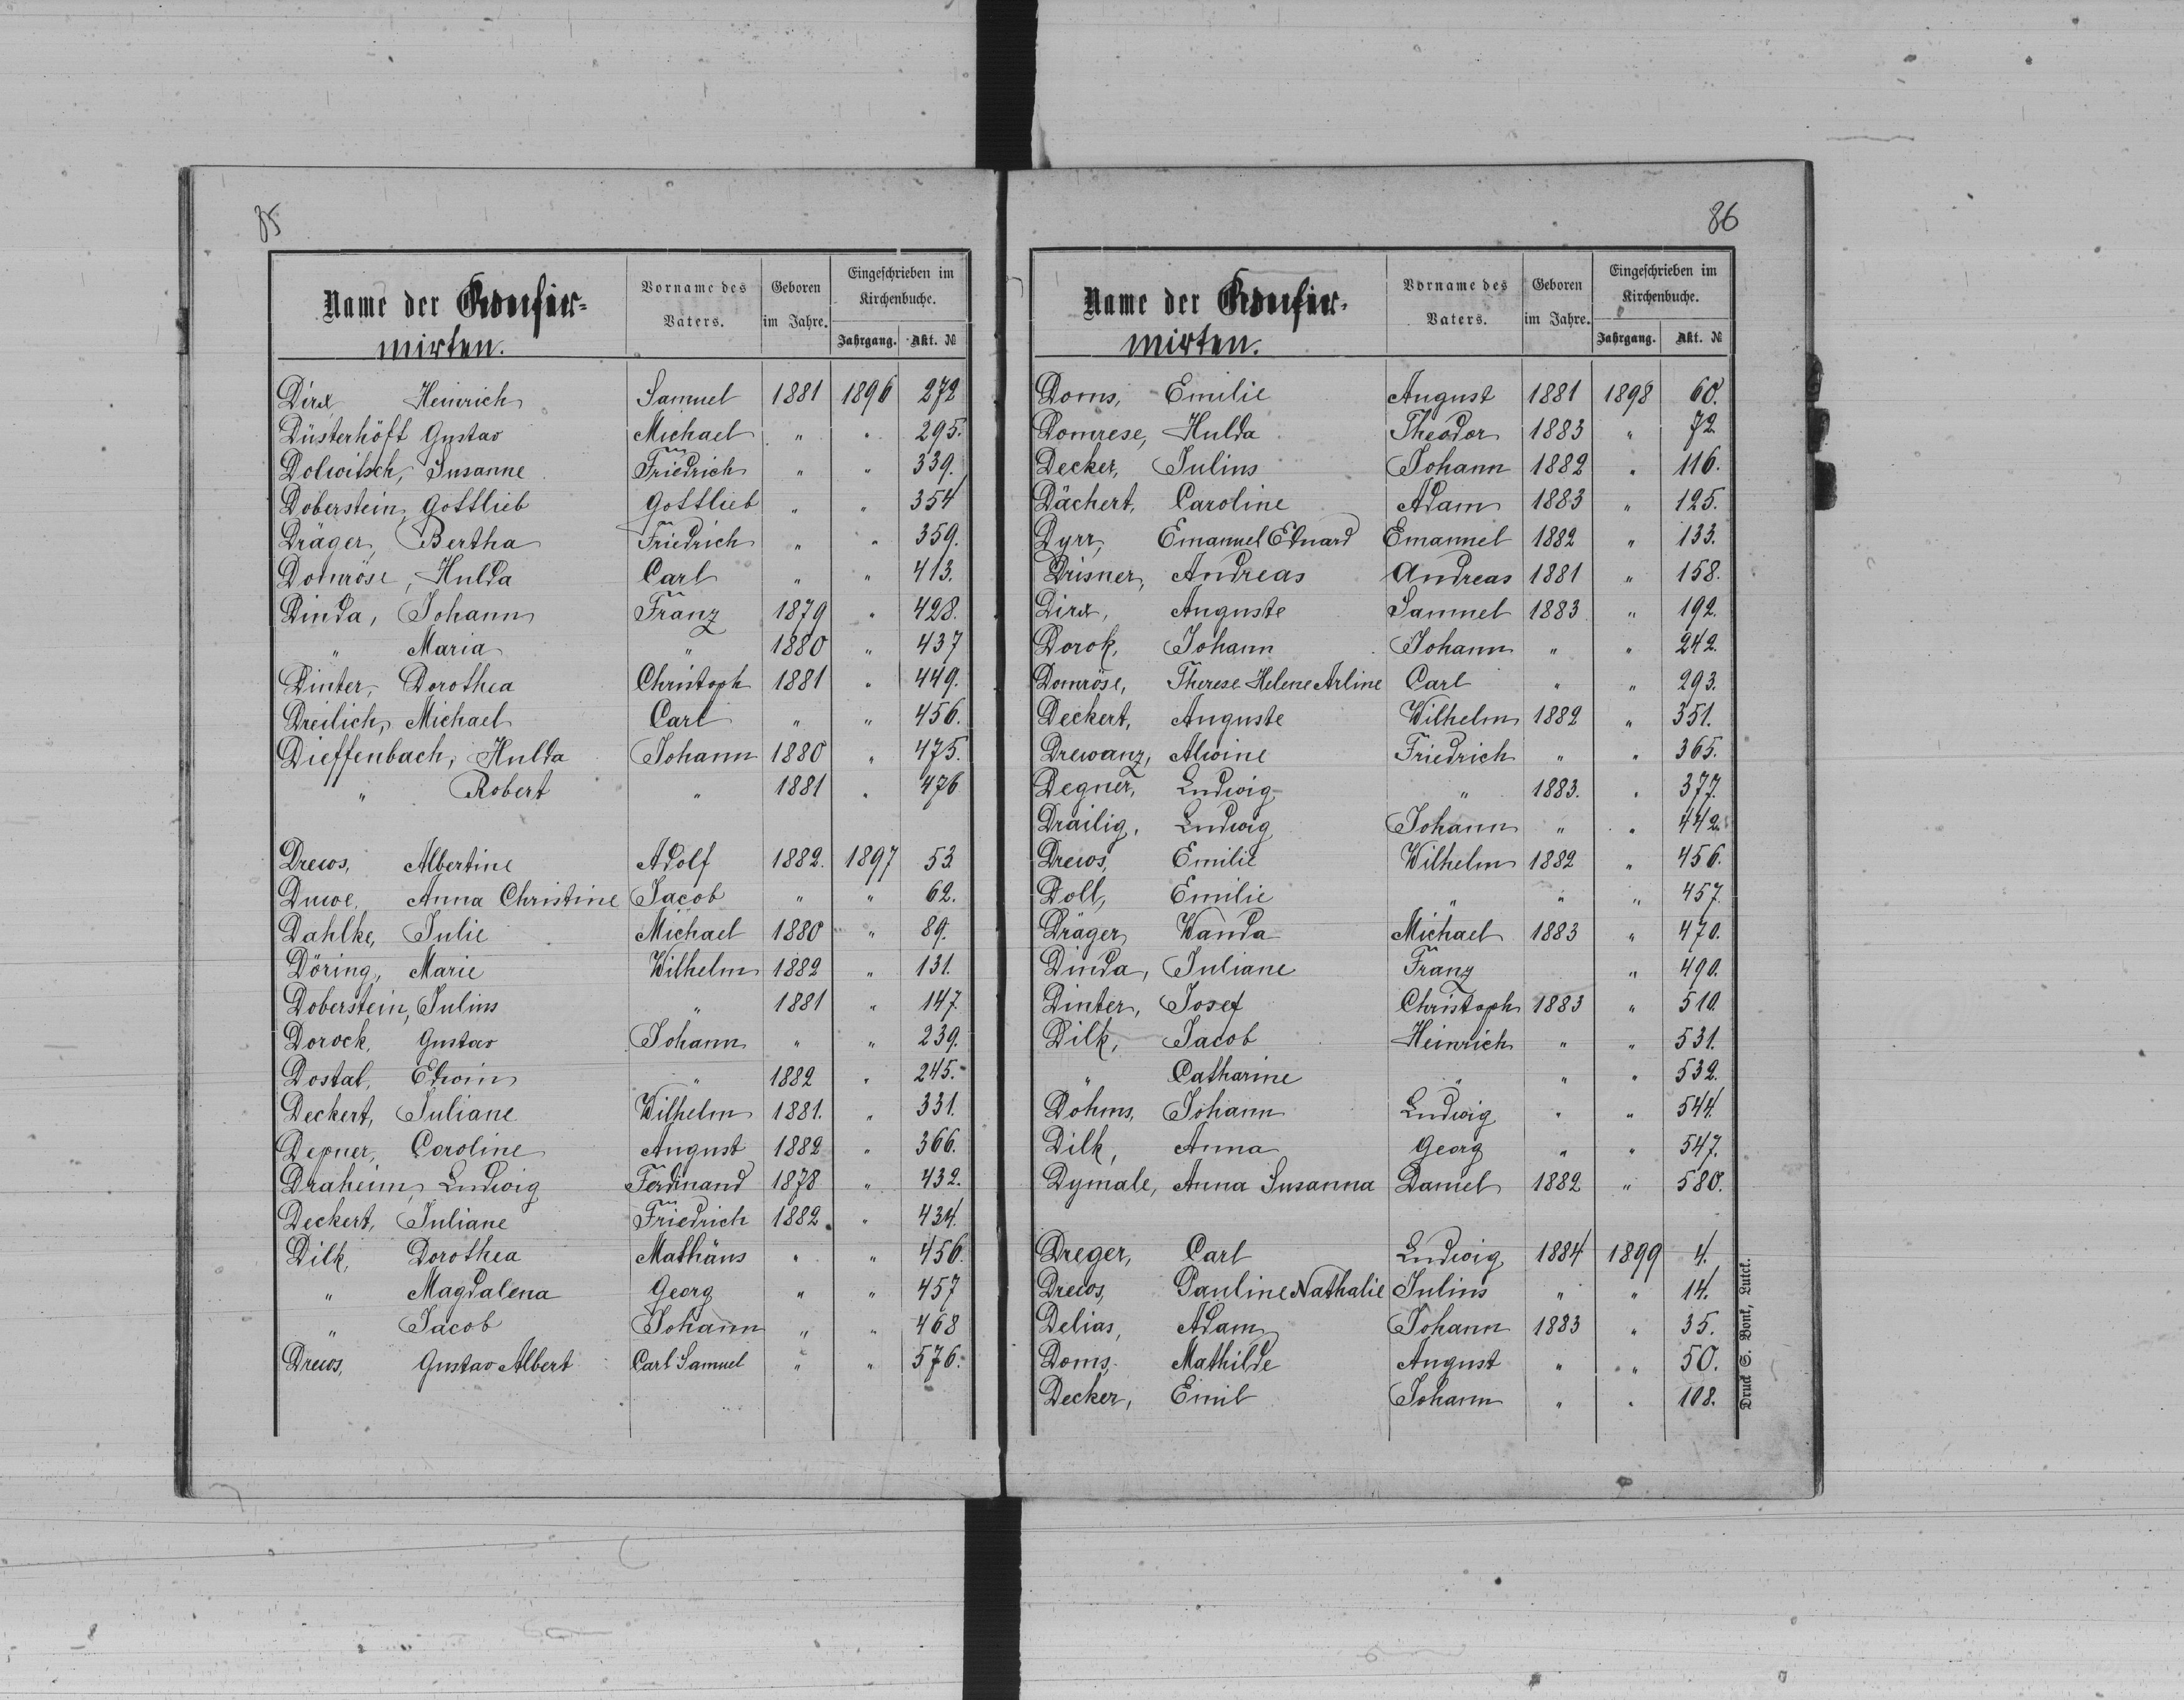 85
Name der Konfir-
mirten.
Vorname des Vaters.
Geboren im Jahre.
Eingeschrieben im Kirchenbuche.
Jahrgang. Akt. №
Dirx, Heinrich Samuel 1881 1896 272
Düsterhöft Gustav Michael " " 295.
Dolwitsch, Susanne Friedrich " " 339.
Doberstein, Gottlieb Gottlieb " " 354
Dräger, Bertha Friedrich " " 359.
Domröse, Hulda Carl " " 413.
Dinda, Johann Franz 1879 " 428.
" Maria " 1880 " 437
Dinter, Dorothea Christoph 1881 " 449.
Dreilich, Michael Carl " " 456.
Dieffenbach, Hulda Johann 1880 " 475.
" Robert " 1881 " 476
Drews, Albertine Adolf 1882. 1897 53
Duwe, Anna Christine Jacob " " 62.
Dahlke, Julie Michael 1880 " 89.
Döring, Marie Wilhelm 1882 " 131.
Doberstein, Julius " 1881 " 147
Dorock, Gustav Johann " " 239.
Dostal, Edwin " 1882 " 245.
Deckert, Juliane Wilhelm 1881. " 331.
Depner, Caroline August 1882 " 366.
Draheim, Ludwig Ferdinand 1878 " 432.
Deckert, Juliane Friedrich 1882. " 434.
Dilk, Dorothea Mathäus " " 456.
" Magdalena Georg " " 457
" Jacob Johann " " 468
Drews, Gustav Albert Carl Samuel " " 576.
86
Name der Konfir-
mirten.
Vorname des Vaters.
Geboren im Jahre.
Eingeschrieben im Kirchenbuche.
Jahrgang. Akt. №
Doms, Emilie August 1881 1898 60.
Domrese, Hulda Theodor 1883 " 72.
Decker, Julius Johann 1882 " 116.
Dächert, Caroline Adam 1883 " 125.
Dyrr, Emanuel Eduard Emanuel 1882 " 133.
Drisner, Andreas Andreas 1881 " 158.
Dirx, Auguste Samuel 1883 " 192.
Dorok, Johann Johann " " 242.
Domröse, Therese Helene Arline Carl " " 293.
Deckert, Auguste Wilhelm 1882 " 351.
Drewanz, Alwine Friedrich " " 365.
Degner, Ludwig " 1883. " 377.
Drailig, Ludwig Johann " " 442.
Drews, Emilie Wilhelm 1882 " 456.
Doll, Emilie " " " 457.
Dräger, Wanda Michael 1883 " 470.
Dinda, Juliane Franz " 490.
Dinter, Josef Christoph 1883 " 510.
Dilk, Jacob Heinrich " " 531.
" Catharine " " " 532.
Dohms, Johann Ludwig " " 544.
Dilk, Anna Georg " " 547.
Dymale, Anna Susanna Daniel 1882 " 580.
Dreger, Carl Ludwig 1884 1899 4.
Drews, Pauline Nathalie Julius " " 14.
Delias, Adam Johann 1883 " 35.
Doms, Mathilde August " " 50.
Decker, Emil Johann " " 108.
Druck S. Bonk, Lutck.